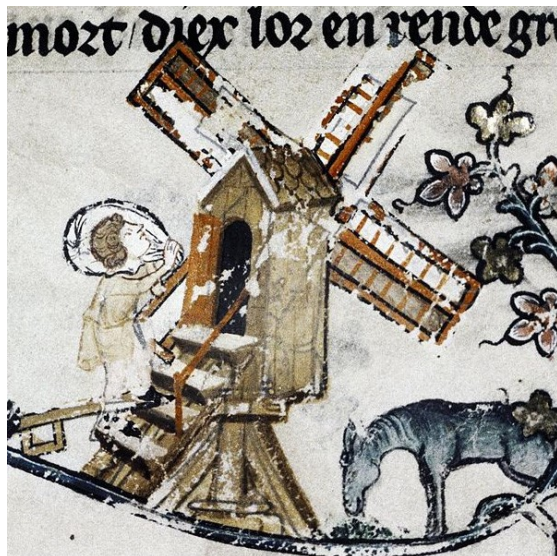 mort / diex lor en rende gre